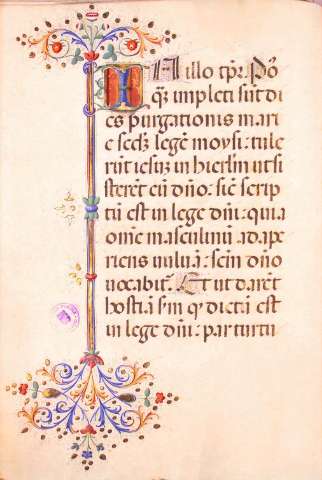 IN illo tp̄r. Po
q̄ impleti sūt di
es purgationis mari
e secd̄ legē moysi: tule
rūt iesuȝ in hierl̄m ut si
sterēt eū dn̄o: sic̄ scrip
tū est in lege dn̄i: quia
om̄e masculinū adape
riens vuluā: sc̄m dn̄o
uocabit᷑. Et ut darēt
hostiā s̄m q̄ dictū est
in lege dn̄i: par turtu